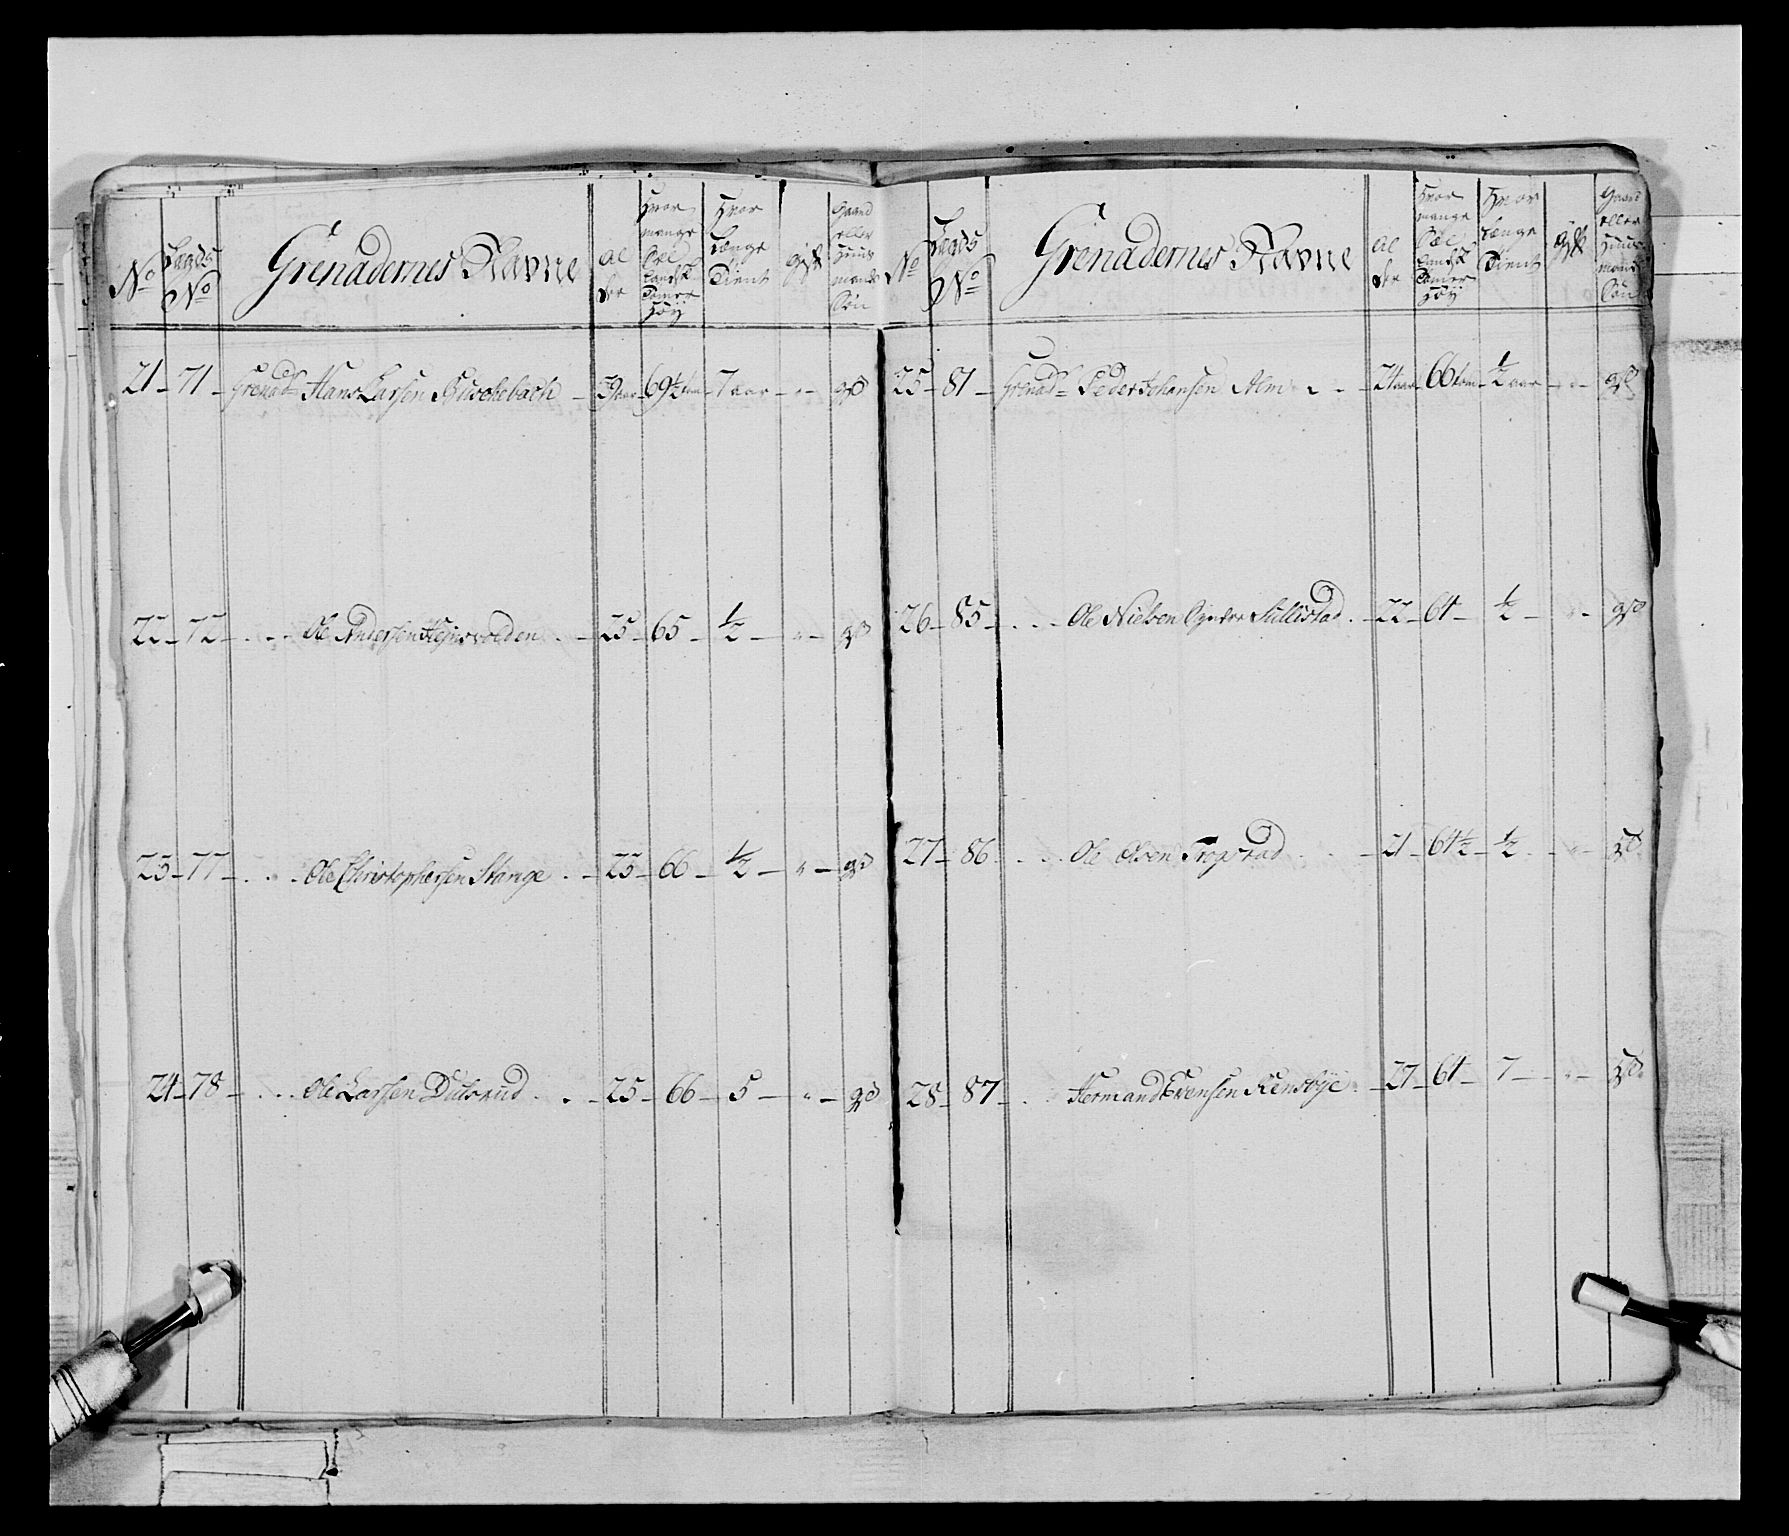 No
Lægds No
Grenadernes Navne
Alder
Hvor mange Sæl landsk Tomer Høy
Hvor Længe Tient
Gift
Gaard eller Huus mands Søn
21 – 71 – Grenadr Hans Larsen – 39 aar 69½ tom 7 aar – " – gs
22 – 72 – . . . Ole Andersen . – 25 – 65 – ½ – " – gs
23 – 77 – . . . Ole Christophersen Stange . – 23 – 66 – ½ – " – gs
24 – 78 – . . . Ole Larsen Dulsrud . . – 25 – 66 – 5 – " – gs
No
Lægds No
Grenadernes Navne
Alder
Hvor mange Sæl landsk Tomer Høy
Hvor Længe Tient
Gift
Gaard eller Huus mands Søn
25 – 81 – Grenadr Peder Johansen Alm – – 24 aar 66 tom ½ aar – " – gs
26 – 85 – . . . Ole Nielsen Sullistad . – 22 – 64 – ½ – " – gs
27 – 86 . . . Ole Olsen Frogstad . – 21 – 64½ – ½ – " – gs
28 – 87 – . . Hermand Evensen Kensbye . – 27 – 64 – 7 – " – gs